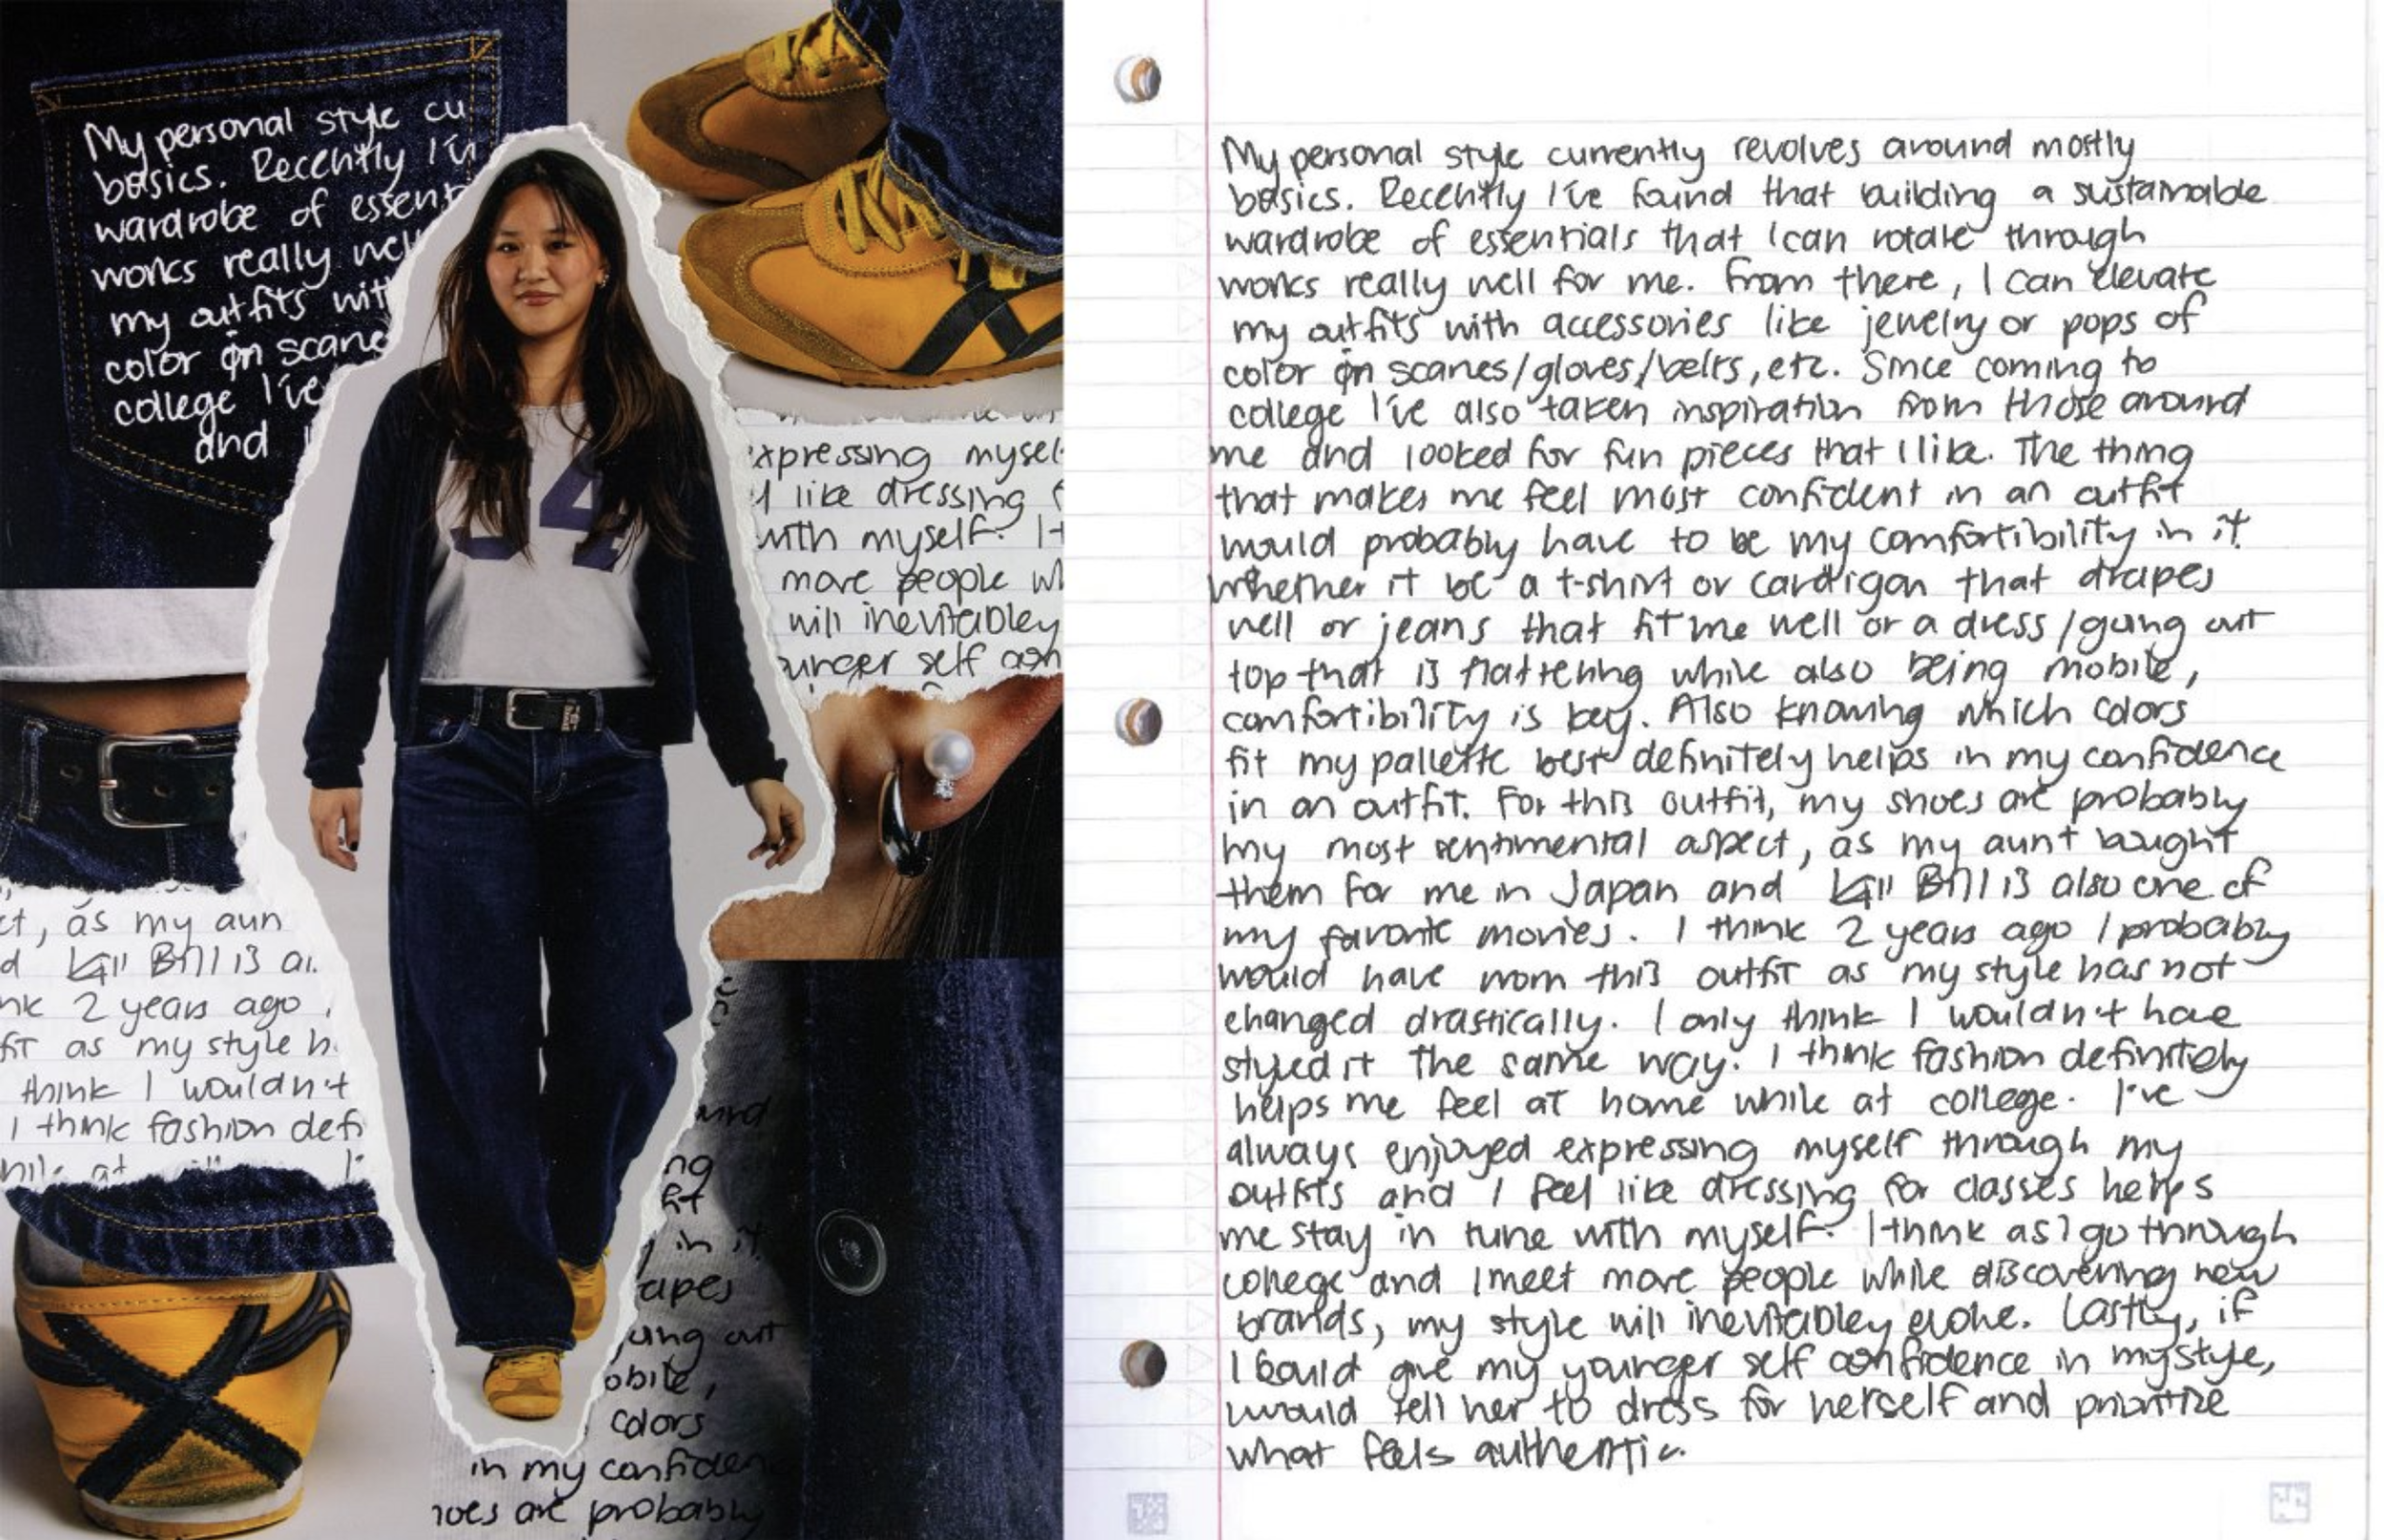 My personal style cu
basics. Recently I've
wardrobe of essent
works really well
my outfits with
color in scarve
college I've
and
54
expressing mysel
l like dressing f
with myself. I t
more people wh
will inevitabley
younger self con
ct, as my aun
d Kill Bill is al
nk 2 years ago
fit as my style h
think I wouldn't
I think fashion defi
while at
ng
fit
y in it
rapes
ying out
obile,
colors
in my confidenc
hoes are probably
My personal style currently revolves around mostly
basics. Recently I've found that building a sustainable
wardrobe of essentials that I can rotate through
works really well for me. From there, I can elevate
my outfits with accessories like jewelry or pops of
color in scarves/gloves/belts, etc. Since coming to
college I've also taken inspiration from those around
me and looked for fun pieces that I like. The thing
that makes me feel most confident in an outfit
would probably have to be my comfortibility in it
whether it be a t-shirt or cardigan that drapes
well or jeans that fit me well or a dress/going out
top that is flattering while also being mobile,
comfortibility is key. Also knowing which colors
fit my pallette best definitely helps in my confidence
in an outfit. For this outfit, my shoes are probably
my most sentimental aspect, as my aunt bought
them for me in Japan and Kill Bill is also one of
my favorite movies. I think 2 years ago I probably
would have worn this outfit as my style has not
changed drastically. I only think I wouldn't have
styled it the same way. I think fashion definitely
helps me feel at home while at college. I've
always enjoyed expressing myself through my
outfits and I feel like dressing for classes helps
me stay in tune with myself. I think as I go through
college and I meet more people while discovering new
brands, my style will inevitabley evolve. Lastly, if
I could give my younger self confidence in my style,
I would tell her to dress for herself and prioritize
what feels authentic.